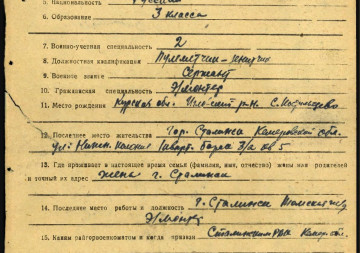 5. Национальность Русский
6. Образование 3 класса
7. Военно-учетная специальность 2
8. Должностная квалификация Пулеметчик-зенитчик
9. Военное звание Сержант
10. Гражданская специальность Эл/монтер
11. Место рождения Курская обл. р-н с.
12. Последнее место жительства Гор. Сталинск Кемеровской обл.
ул. 3/а кв 5
13. Где проживает в настоящее время семья (фамилия, имя, отчество) жены или родителей
и точный их адрес жена г. Сталинск
14. Последнее место работы и должность г. Сталинск
Эл/монтер
15. Каким райгорвоенкоматом и когда призван Сталинским РВК Кемер. обл.